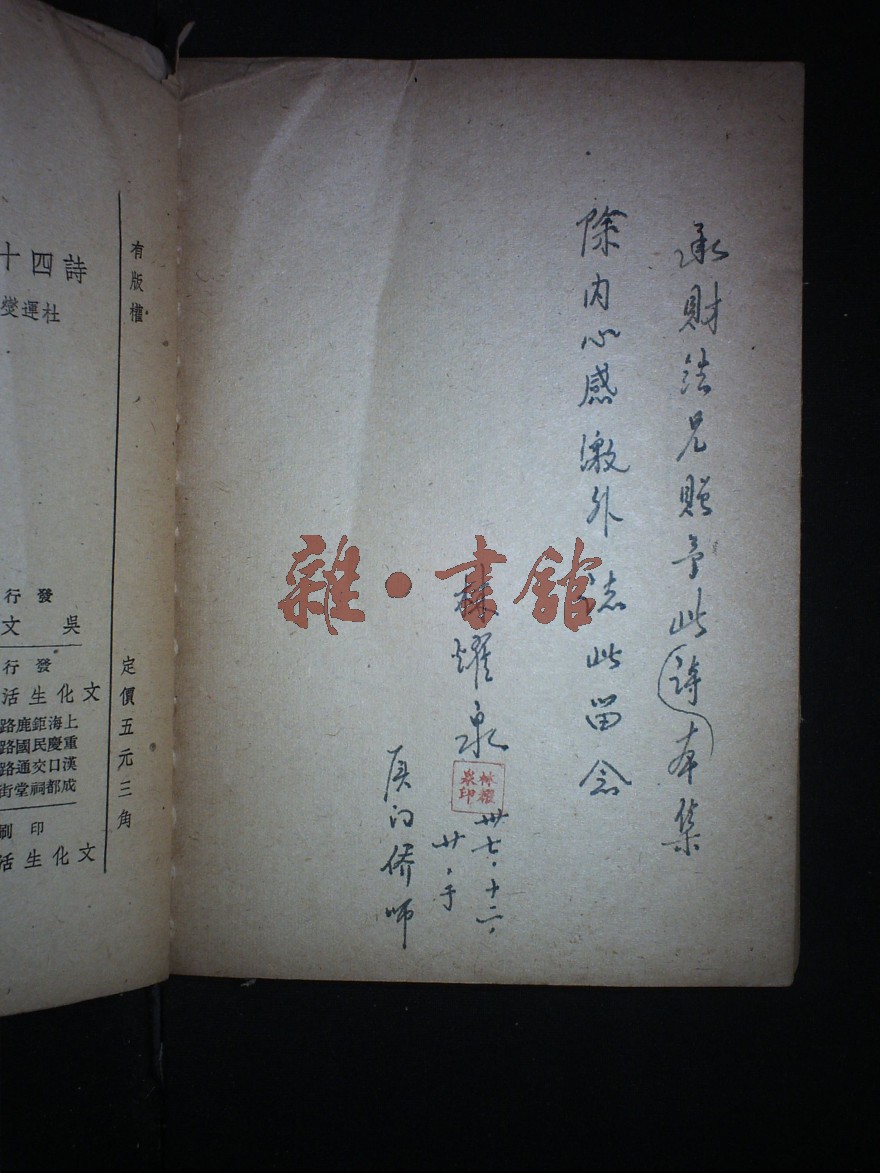 承財浩兄贈予此詩本集
除內心感激外誌此留念
林燿泉
林燿
泉印
卅七·十二·
廿·于
厦门侨师
雜·書館
有版權
定價五元三角
詩四十
杜運燮
發行
吳文
發行
文化生活
上海鉅鹿路
重慶民國路
漢口交通路
成都祠堂街
印刷
文化生活